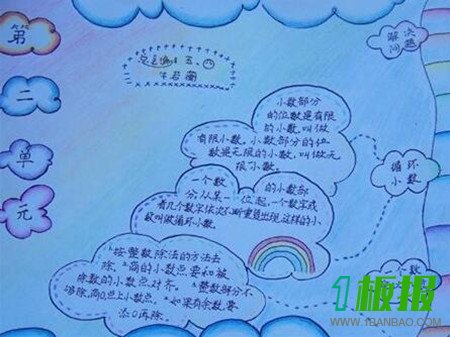 第
二
单
元
解决
问题
小数部分
的位数是有限
的小数,叫做
有限小数。小数部分的位
数是无限的小数,叫做无
限小数。
循环
小数
一个数的小数部
分,从某一位起,一个数字或
者几个数字依次不断重复出现,这样的小
数叫做循环小数。
按整数除法的方法去
除,商的小数点要和被
除数的小数点对齐。整数部分不
够除,商0,点上小数点。如果有余数,要
添0再除。
一个数
1板报
WWW.1BANBAO.COM